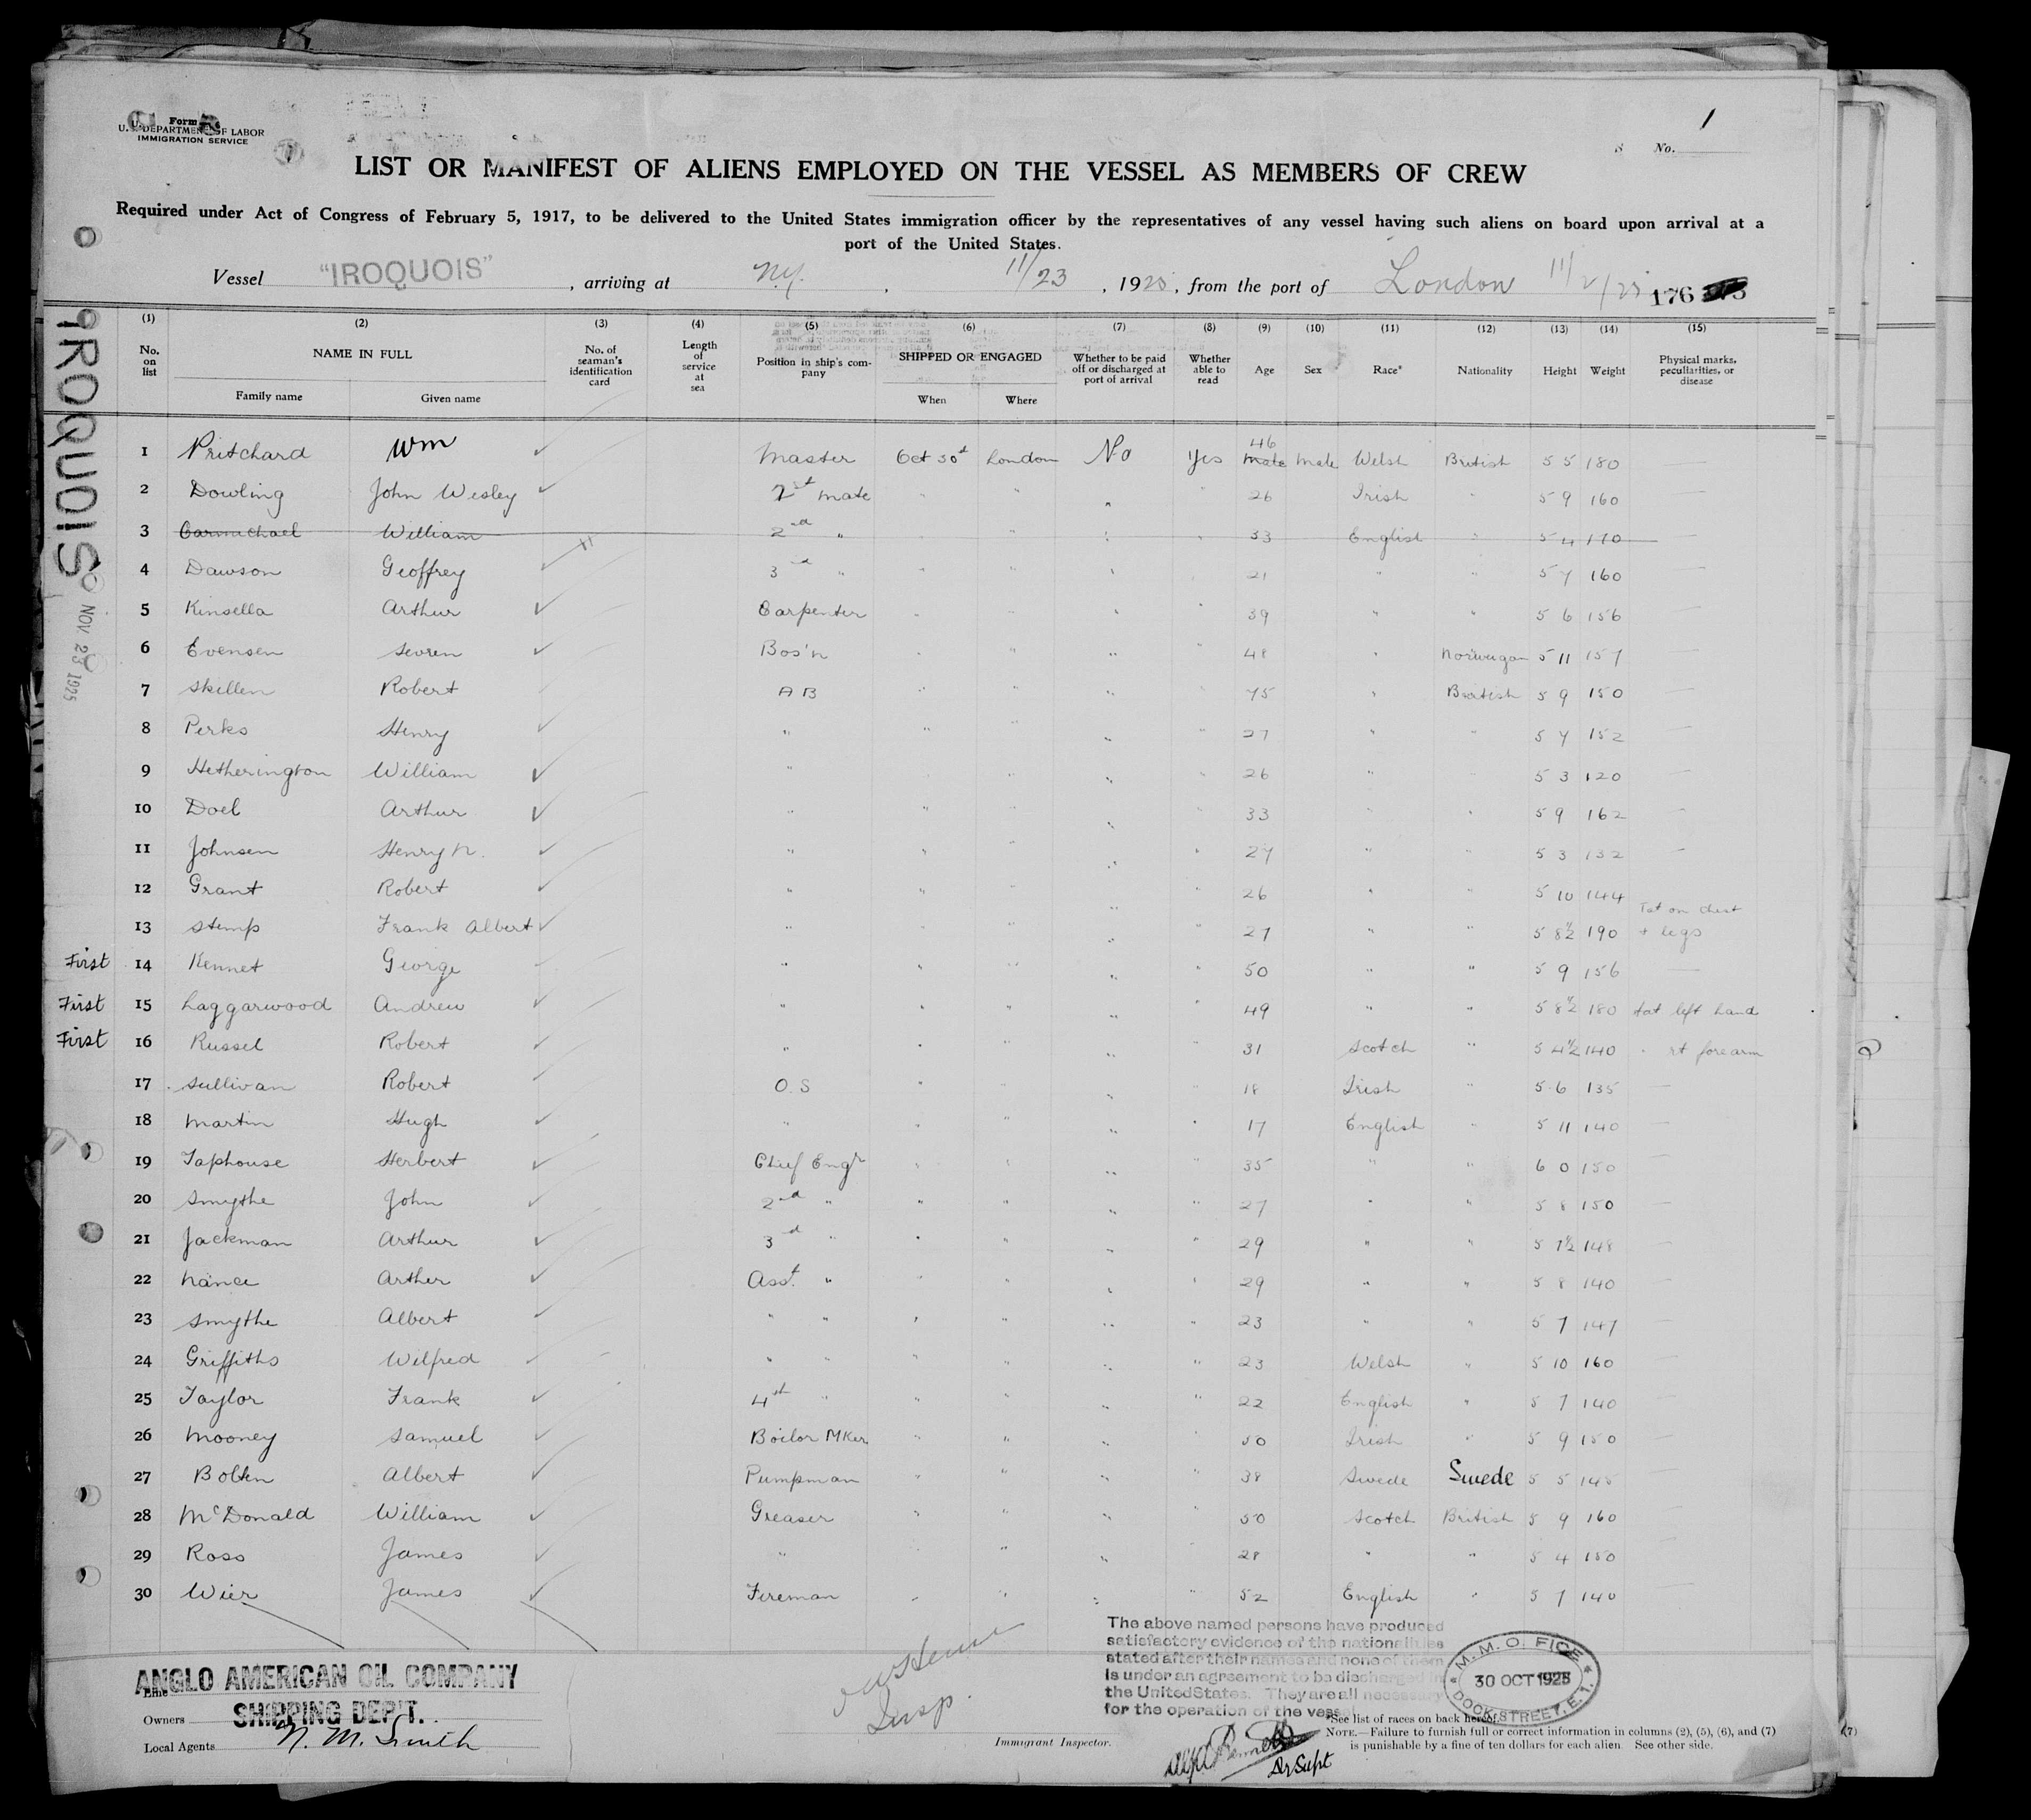 Form
U. S. DEPARTMENT OF LABOR
IMMIGRATION SERVICE
1
No.
LIST OR MANIFEST OF ALIENS EMPLOYED ON THE VESSEL AS MEMBERS OF CREW
Required under Act of Congress of February 5, 1917, to be delivered to the United States immigration officer by the representatives of any vessel having such aliens on board upon arrival at a
port of the United States.
Vessel "IROQUOIS", arriving at N.Y., 11/23, 1925, from the port of London 11/2/25 176
IROQUOIS NOV 23 1925
(1) (2) (3) (4) (5) (6) (7) (8) (9) (10) (11) (12) (13) (14) (15)
No. on list NAME IN FULL Family name Given name No. of seaman's identification card Length of service at sea Position in ship's company SHIPPED OR ENGAGED When Where Whether to be paid off or discharged at port of arrival Whether able to read Age Sex Race* Nationality Height Weight Physical marks, peculiarities, or disease
1 Pritchard Wm ✓ Master Oct 30th London No Yes 46 male Welsh British 5 5 180 —
2 Dowling John Wesley ✓ mate " " " " 26 Irish " 5 9 160 —
3 Carmichael William 2nd " " " " " 33 English " 5 4 170 —
4 Dawson Geoffrey ✓ 3rd " " " " " 21 " " 5 7 160 —
5 Kinsella Arthur ✓ Carpenter " " " " 39 " " 5 6 156 —
6 Evensen Sevren ✓ Bos'n " " " " 48 " Norweigan 5 11 157 —
7 Skillen Robert ✓ A B " " " " 45 " British 5 9 150 —
8 Perks Henry ✓ " " " " " 27 " " 5 7 152 —
9 Hetherington William ✓ " " " " " 26 " " 5 3 120 —
10 Doel Arthur ✓ " " " " " 33 " " 5 9 162 —
11 Johnsen Henry N. ✓ " " " " " 27 " " 5 3 132 —
12 Grant Robert ✓ " " " " " 26 " " 5 10 144
13 Stemp Frank Albert ✓ " " " " " 27 " " 5 8½ 190 Tat on chest + legs
First 14 Kennet George ✓ " " " " " 50 " " 5 9 156 —
First 15 Laggarwood Andrew ✓ " " " " " 49 " " 5 8½ 180 tat left hand
First 16 Russel Robert ✓ " " " " " 31 Scotch " 5 4½ 140 " rt forearm
17 Sullivan Robert ✓ O.S " " " " 18 Irish " 5 6 135 —
18 Martin Hugh ✓ " " " " " 17 English " 5 11 140 —
19 Taphouse Herbert ✓ Chief Engr " " " " 35 " " 6 0 150 —
20 Smythe John ✓ 2nd " " " " " 27 " " 5 8 150 —
21 Jackman Arthur ✓ 3rd " " " " " 29 " " 5 7½ 148 —
22 Nance Arther ✓ Asst. " " " " " 29 " " 5 8 140 —
23 Smythe Albert ✓ " " " " " " 23 " " 5 7 147 —
24 Griffiths Wilfred ✓ " " " " " " 23 Welsh " 5 10 160 —
25 Taylor Frank ✓ 4th " " " " " 22 English " 5 7 140 —
26 Mooney Samuel ✓ Boilor MKer " " " " 50 Irish " 5 9 150 —
27 Bolten Albert ✓ Pumpman " " " " 38 Swede Swede 5 5 145 —
28 McDonald William ✓ Greaser " " " " 50 Scotch British 5 9 160 —
29 Ross James ✓ " " " " " 28 " " 5 4 150 —
30 Wier James ✓ Fireman " " " " 52 English " 5 7 140 —
The above named persons have produced
satisfactory evidence of the nationalities
stated after their names and none of them
is under an agreement to be discharged in
the United States. They are all necessary
for the operation of the vessel
M.M. OFFICE
30 OCT 1925
DOCK STREET, E.1.
ANGLO AMERICAN OIL COMPANY
Line
SHIPPING DEPT.
Owners
Local Agents N. M. Smith
Insp.
Immigrant Inspector.
Dr Supt
*See list of races on back hereof.
NOTE.—Failure to furnish full or correct information in columns (2), (5), (6), and (7)
is punishable by a fine of ten dollars for each alien. See other side.
(7)